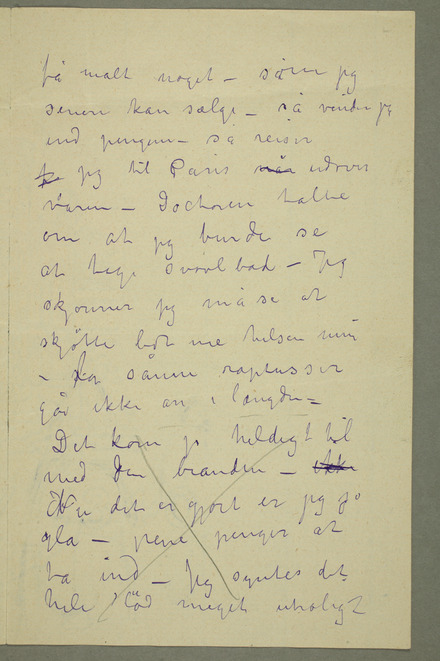 få malt noget – som jeg
senere kan sælge – så vinder jeg
ind pengene – så reiser
jeg til Paris udover
våren – Doctoren talte
om at jeg burde se
at tage svovlbad – Jeg
skjønner jeg må se at
skjøtte helsen min
– sånne raptusser
går ikke an i længden –
Det kom jo heldigt til
med den branden – ikke
Nu det er gjort er jeg jo
gla – pene penger at
ta ind – Jeg syntes det
hele lød meget uroligt